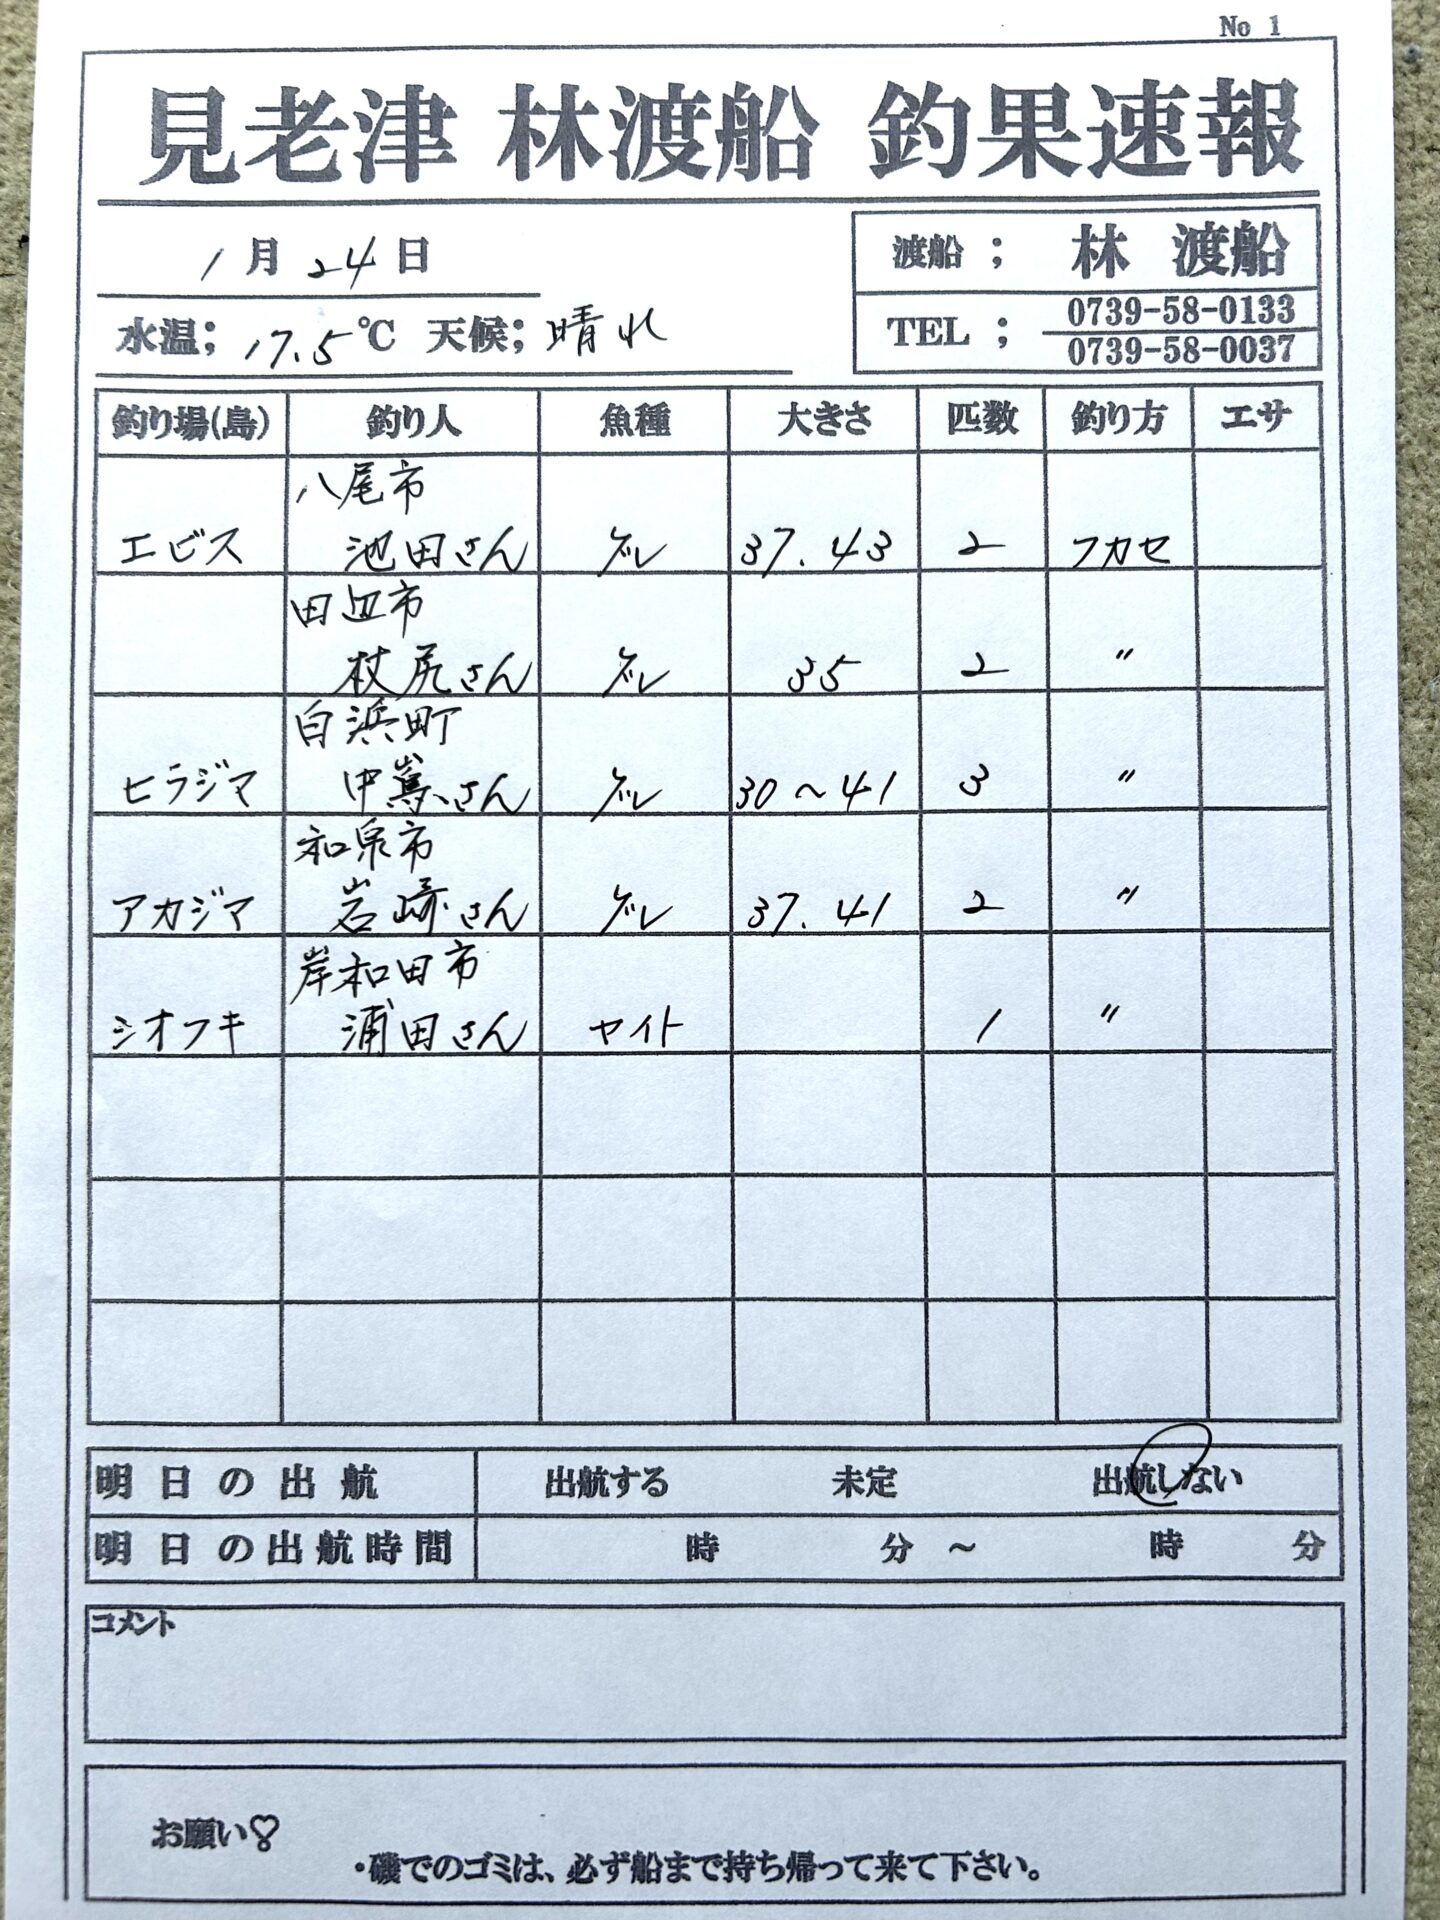 No 1
見老津 林渡船 釣果速報
1月24日
渡船; 林 渡船
水温; 17.5℃ 天候; 晴れ
TEL; 0739-58-0133
0739-58-0037
釣り場(島) 釣り人 魚種 大きさ 匹数 釣り方 エサ
八尾市
エビス 池田さん グレ 37.43 2 フカセ
田辺市
杖尻さん グレ 35 2 〃
白浜町
ヒラジマ 中嶌さん グレ 30〜41 3 〃
和泉市
アカジマ 岩崎さん グレ 37.41 2 〃
岸和田市
シオフキ 浦田さん ヤイト 1 〃
明日の出航 出航する 未定 出航しない
明日の出航時間 時 分 〜 時 分
コメント
お願い♡
・磯でのゴミは、必ず船まで持ち帰って来て下さい。